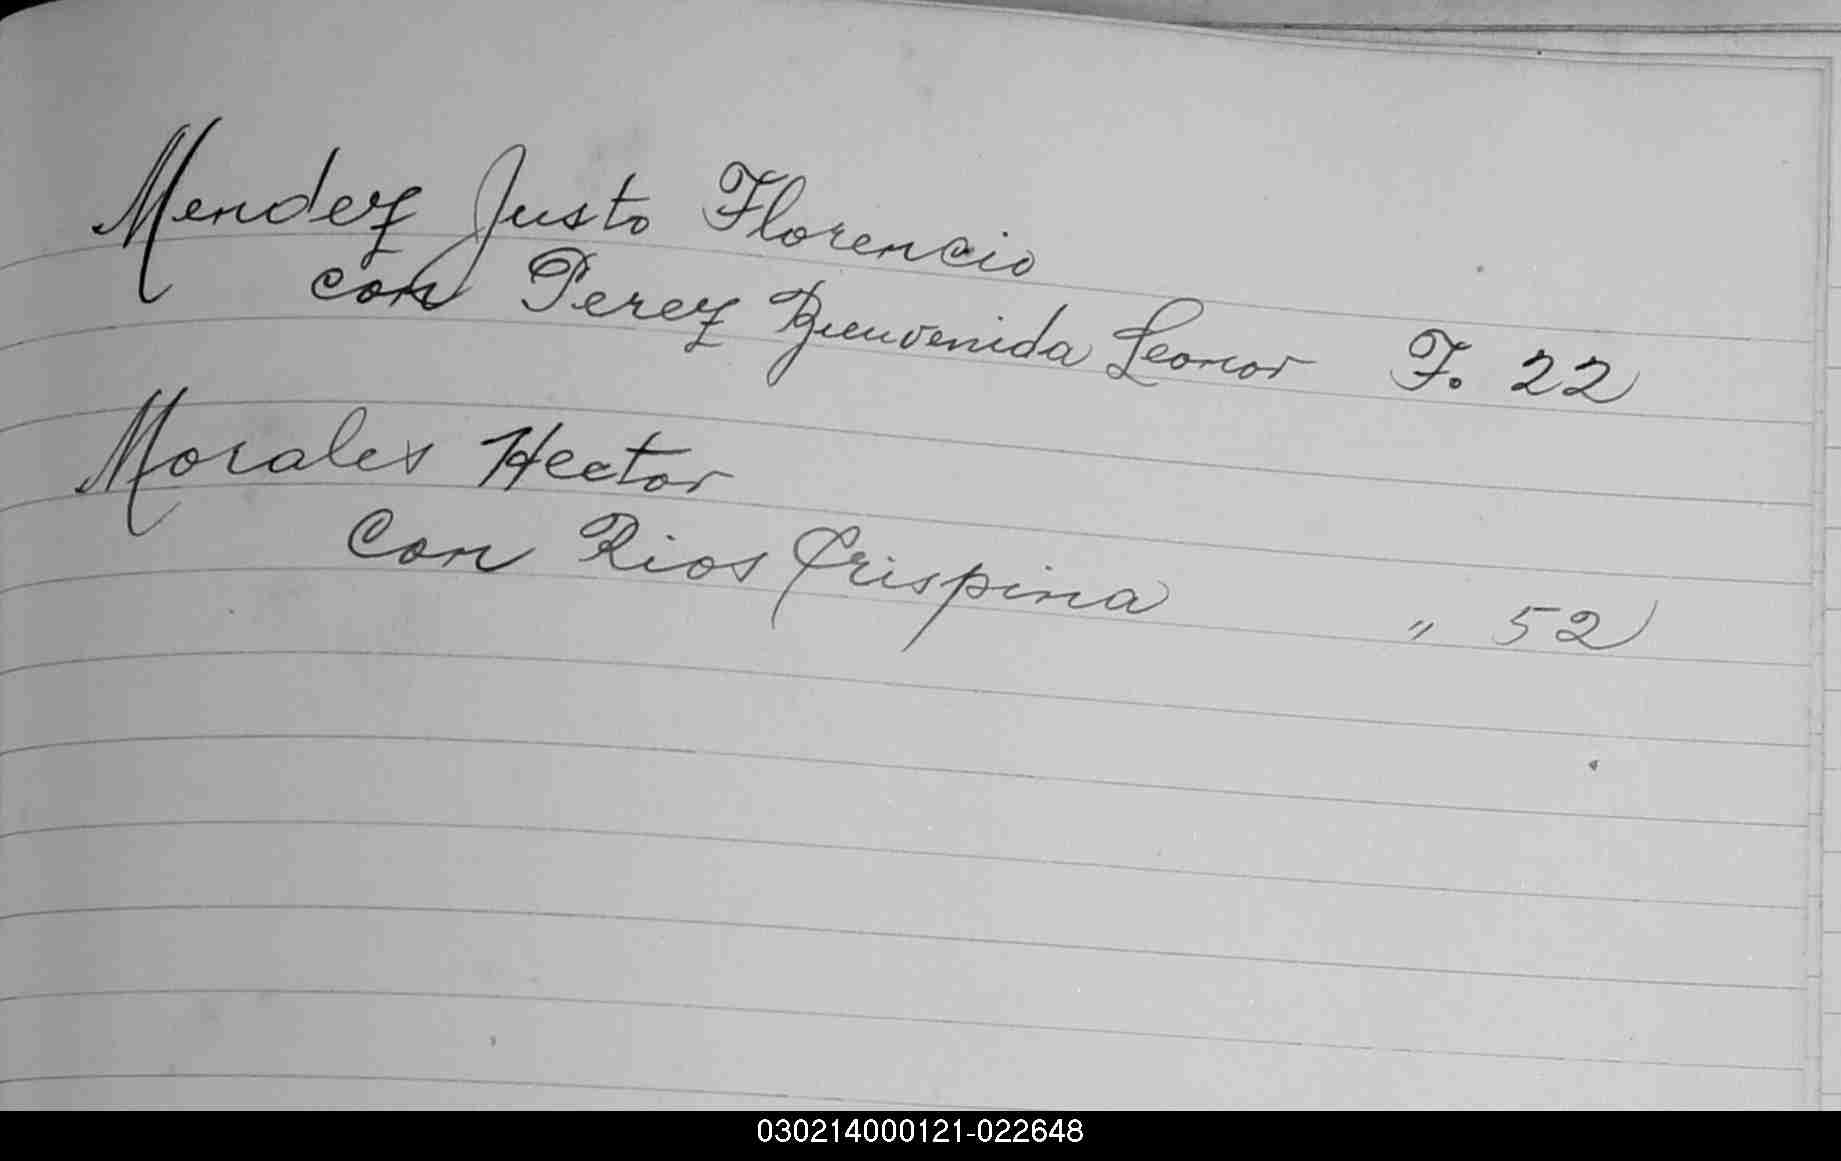 Mendez Justo Florencio
con Perez Bienvenida Leonor F. 22
Morales Hector
Con Rios Crispina " 52
030214000121-022648